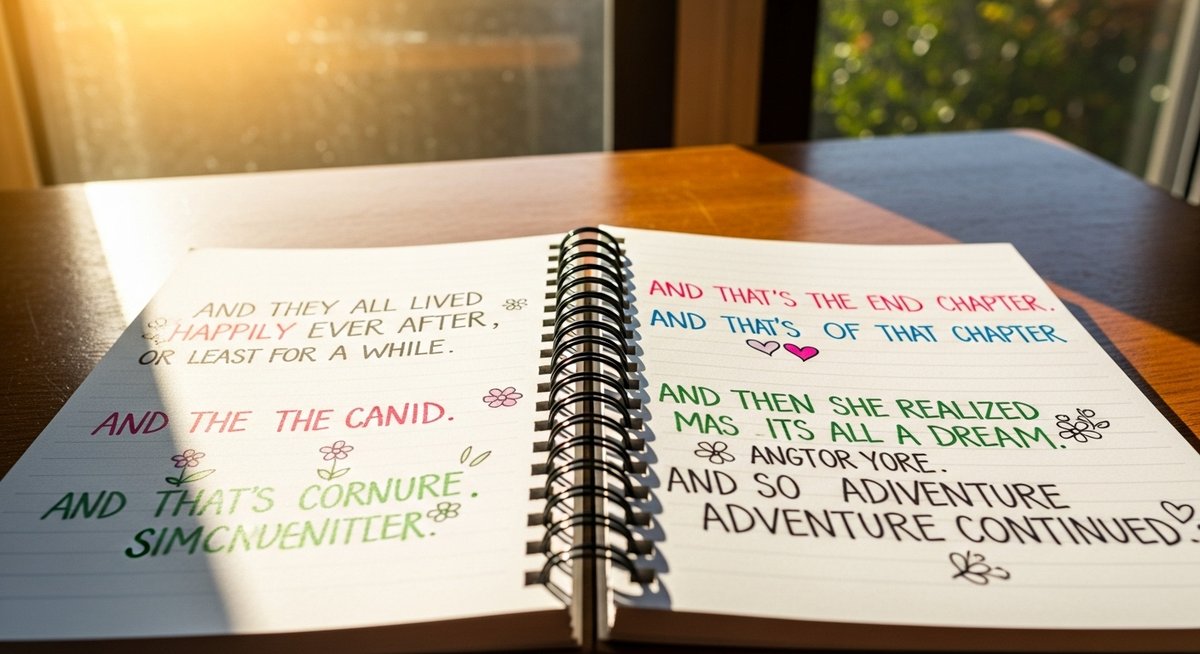 AND THEY ALL LIVED
HAPPILY EVER AFTER,
OR LEAST FOR A WHILE.
AND THE THE CANID.
AND THAT'S CORNURE.
SIMCNUENITLER.
AND THAT'S THE END CHAPTER.
AND THAT'S OF THAT CHAPTER
AND THEN SHE REALIZED
MAS ITS ALL A DREAM.
ANGTOR YORE.
AND SO ADIVENTURE
ADVENTURE CONTINUED.